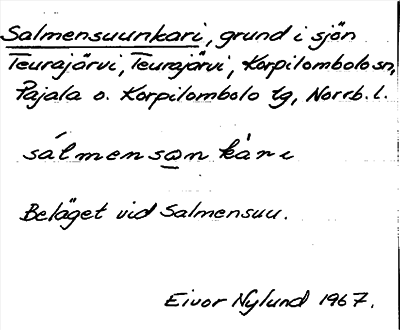 Salmensuunkari, grund i sjön
Teurajärvi, Teurajärvi, Korpilombolo sn,
Pajala o. Korpilombolo tg, Norrb. l.
sálmenso̲n kàri
Beläget vid Salmensuu.
Eivor Nylund 1967.